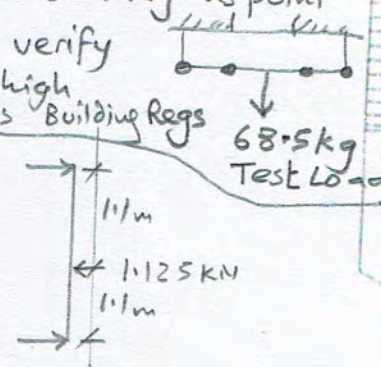 point
verify
high
s Building Regs
68.5kg
Test Load
1.1m
1.125 KN
1.1m